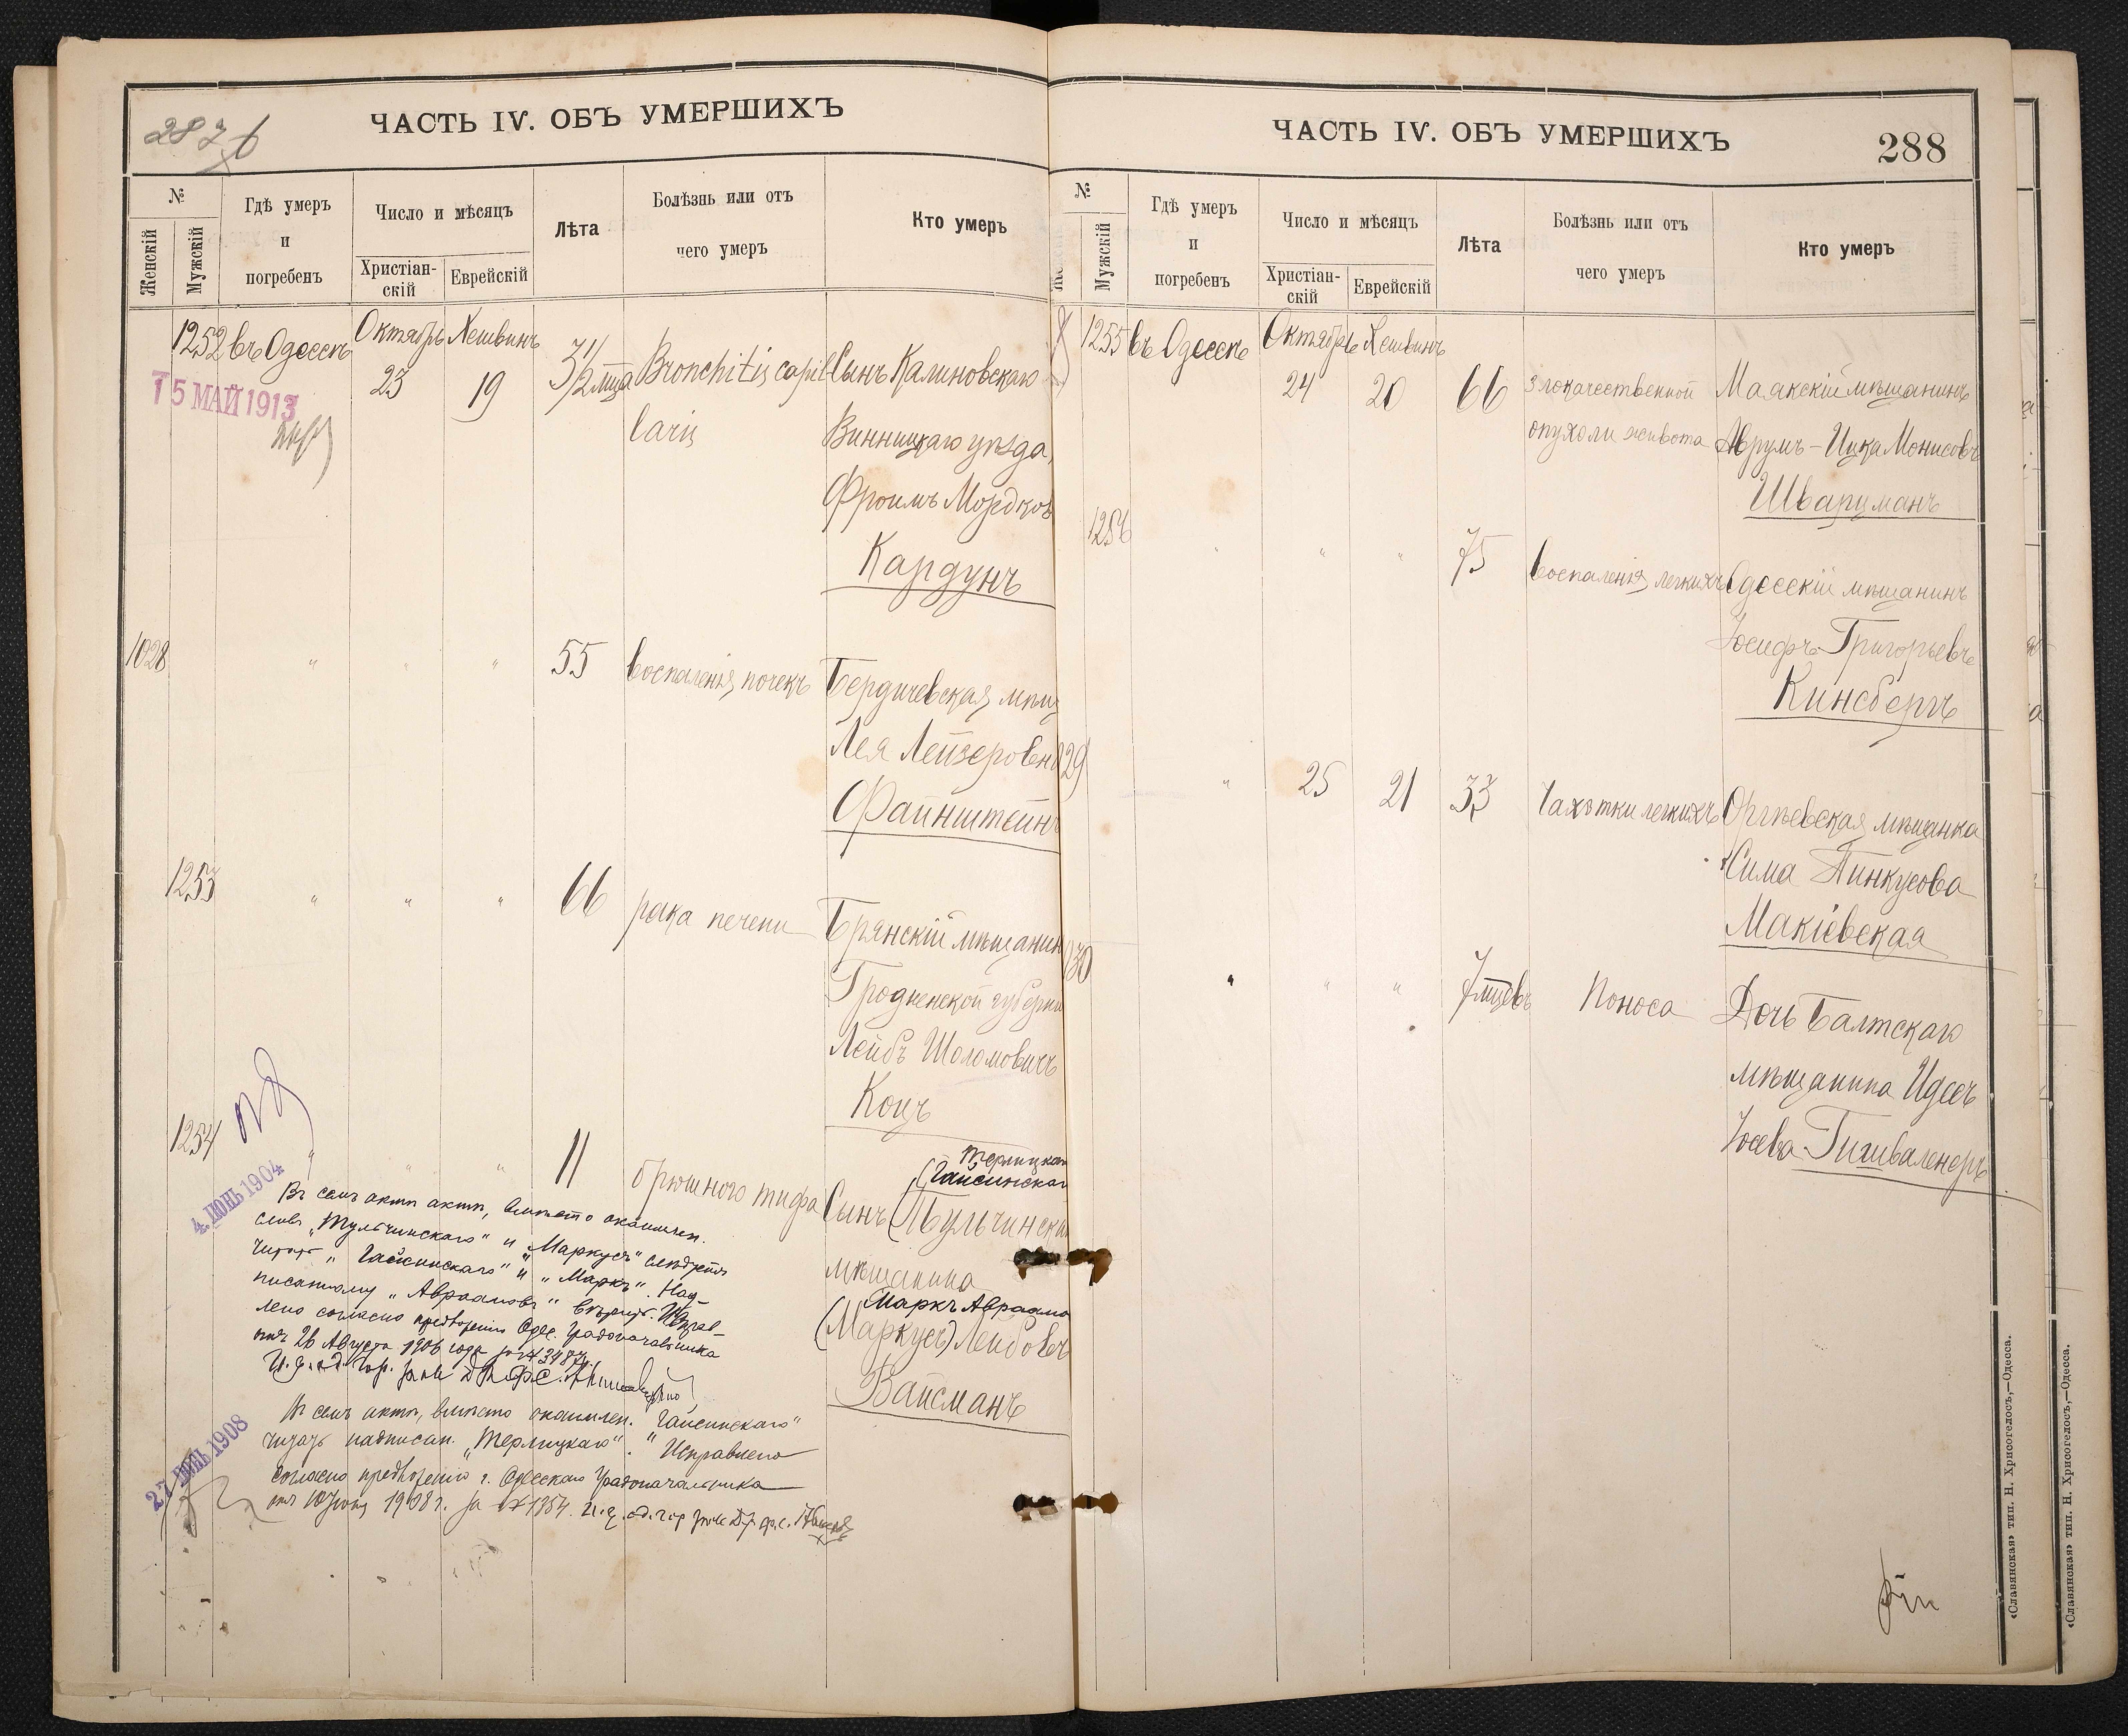 287б
ЧАСТЬ IV. ОБЪ УМЕРШИХЪ
№
Женскій
Мужскій
Гдѣ умеръ
и
погребенъ
Число и мѣсяцъ
Христіан-
скій
Еврейскій
Лѣта
Болѣзнь или отъ
чего умеръ
Кто умеръ
1252 въ Одессѣ Октябрь Хешвинъ
23 19 3 1/2 мца Bronchitis capil Сынъ Калиновскаго
15 МАЙ 1913
laris Винницкаго уѣзда,
Фроимъ Мордков
Кардунъ
1028 " " " 55 Воспаленія почекъ Бердичевская мѣщ
Лея Лейзеровн
Файнштейнъ
1253 " " " 66 рака печени Брянскій мѣщанин
Гродненской губерни
Лейбъ Шоломовичъ
Коцъ
1254 " " " 11 брюшного тифа
Терлицкаг
(Гайсинскаг
Сынъ (Тульчинска
мѣщанина
Маркъ Авраамо
(Маркусъ) Лейбовъ
Вайсманъ
4. ІЮНЬ 1904
Въ семъ актѣ актѣ, вмѣсто окаймлен.
словъ „Тульчинскаго" и „Маркусъ" слѣдуетъ
читать „Гайсинскаго" и „Маркъ". Над-
писанному „Авраамовъ" вѣрить. Исправ-
лено согласно предложенію Одес. Градоначальника
отъ 26 Августа 1906 года за № 3487.
Въ семъ актѣ, вмѣсто окаймлен. „Гайсинскаго"
читать надписан. „Терлицкаго". Исправлено
согласно предложенію г. Одесскаго Градоначальника
отъ 10 Іюня 1908 г. за № 1354.
27 ІЮНЬ 1908
ЧАСТЬ IV. ОБЪ УМЕРШИХЪ
288
№
Мужскій
Гдѣ умеръ
и
погребенъ
Число и мѣсяцъ
Христіан-
скій
Еврейскій
Лѣта
Болѣзнь или отъ
чего умеръ
Кто умеръ
1255 въ Одессѣ Октябрь Хешвинъ
24 20 66 злокачественной Маякскій мѣщанинъ
опухоли живота Аврумъ-Ицка Монисовъ
Шварцманъ
1256 " " " 75 Воспаленія легкихъ Одесскій мѣщанинъ
Іосифъ Григорьевъ
Кинсбергъ
029 " 25 21 33 Чахотки легкихъ Оргѣевская мѣщанка
Сима Пинкусова
Макіевская
030 " " " 7 мцевъ Поноса Дочь Балтскаго
мѣщанина Идесъ
Іосева Гитваленеръ
«Славянская» тип. Н. Хрисогелосъ,—Одесса.
«Славянская» тип. Н. Хрисогелосъ,—Одесса.